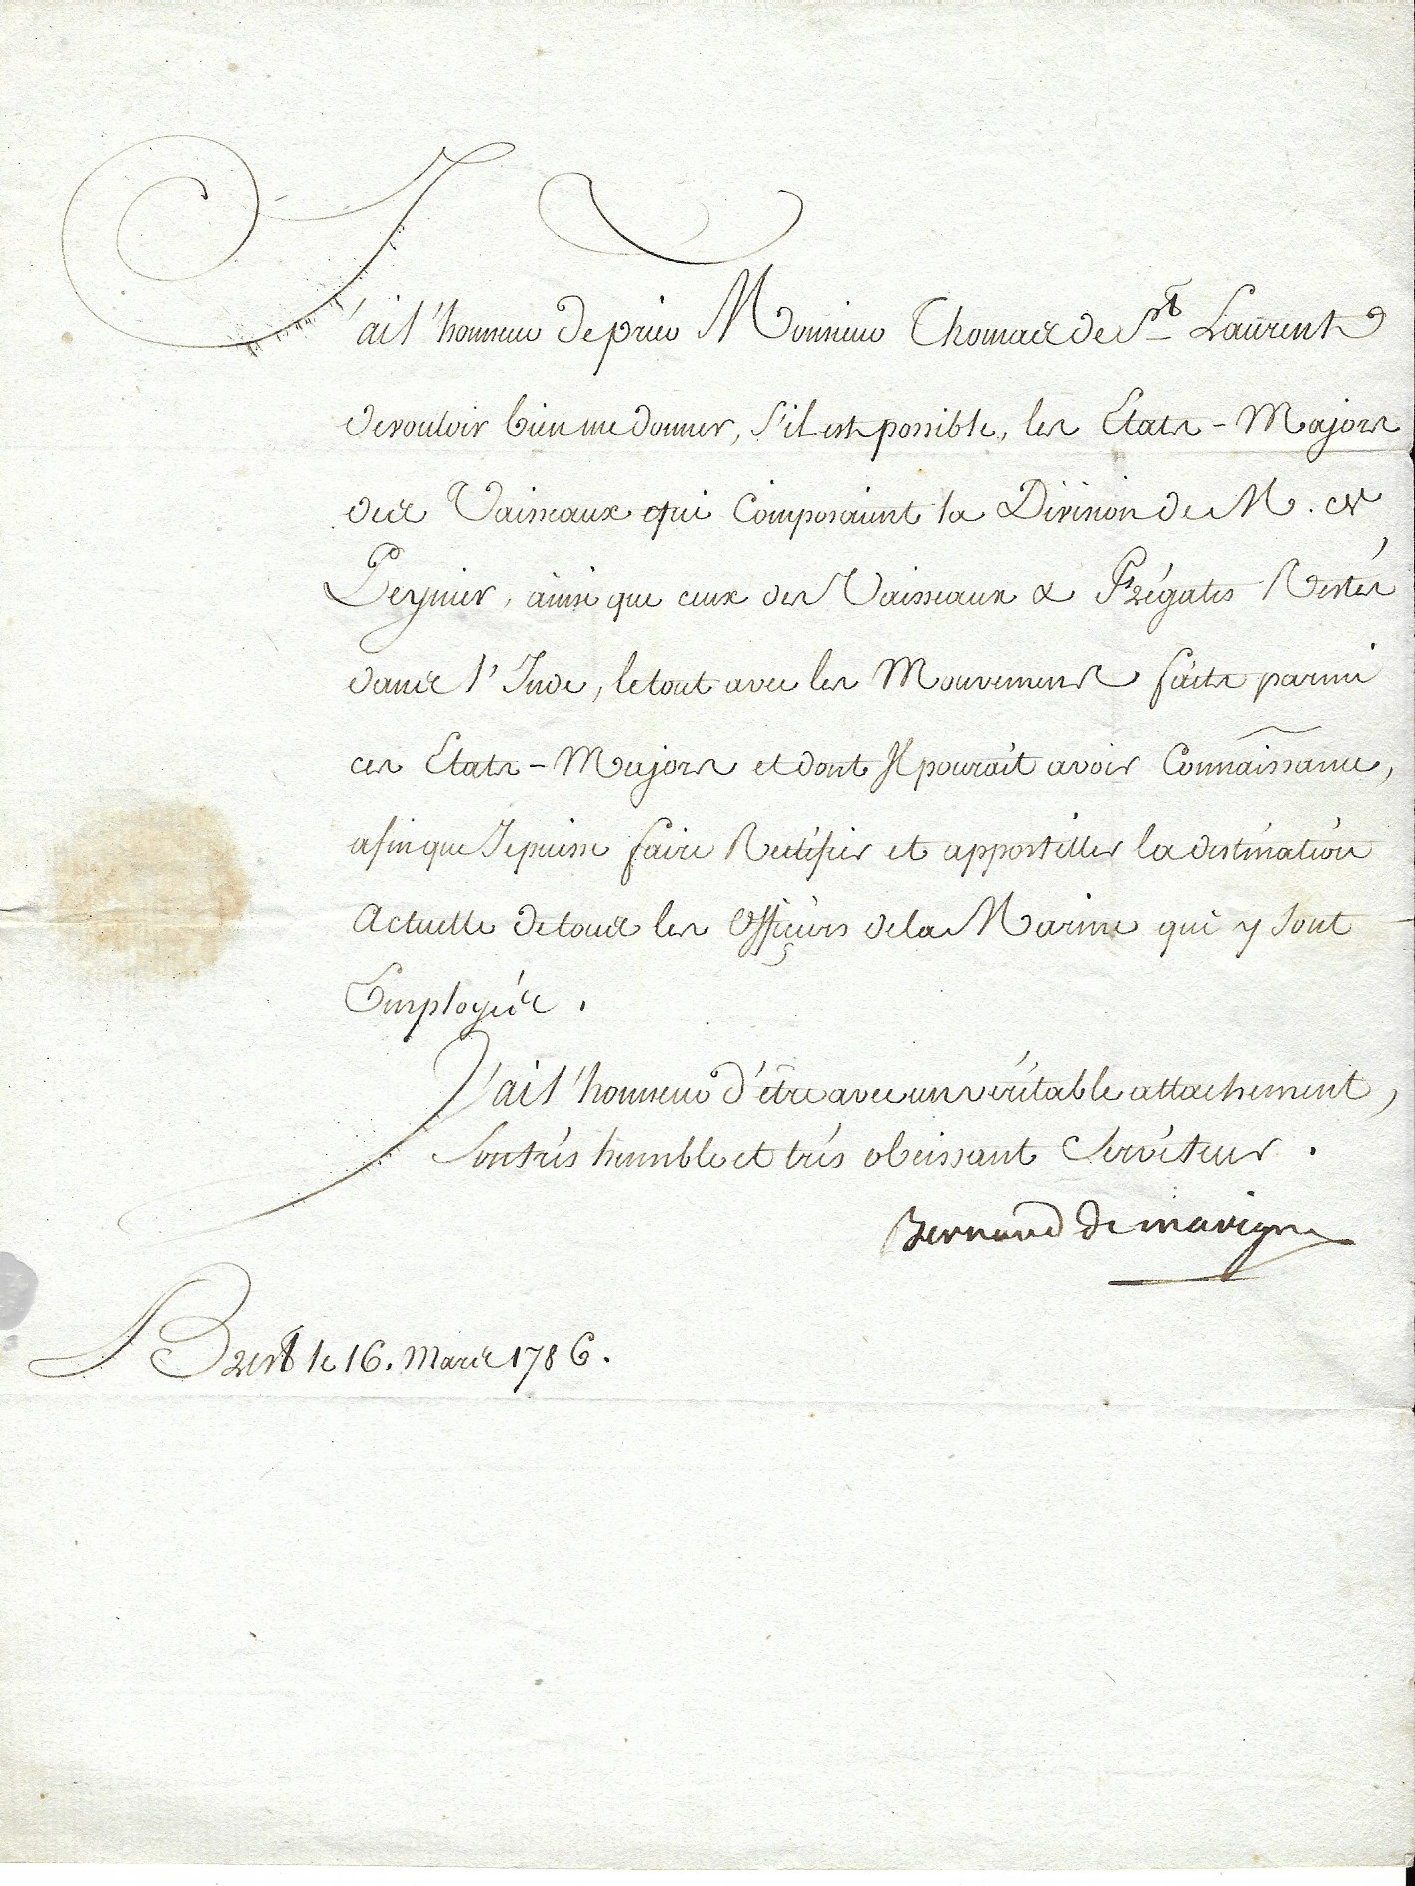 J'ai l'honneur de prier Monsieur Thomas de St Laurent
de vouloir bien me donner, s'il est possible, les Etats-Majors
des Vaisseaux qui Composaient la Division de M. de
Peynier, ainsi que ceux des Vaisseaux & Frégates Restés
dans l'Inde, le tout avec les Mouvemens faits parmi
ces Etats-Majors et dont Il pourait avoir Connaissance,
afin que Je puisse faire Rectifier et appostiller la destination
Actuelle de tous les Officiers de la Marine qui y sont
Employés.
J'ai l'honneur d'être avec un véritable attachement,
Son trés humble et trés obeissant Serviteur.
Bernard de marigny
Brest le 16. Mars 1786.